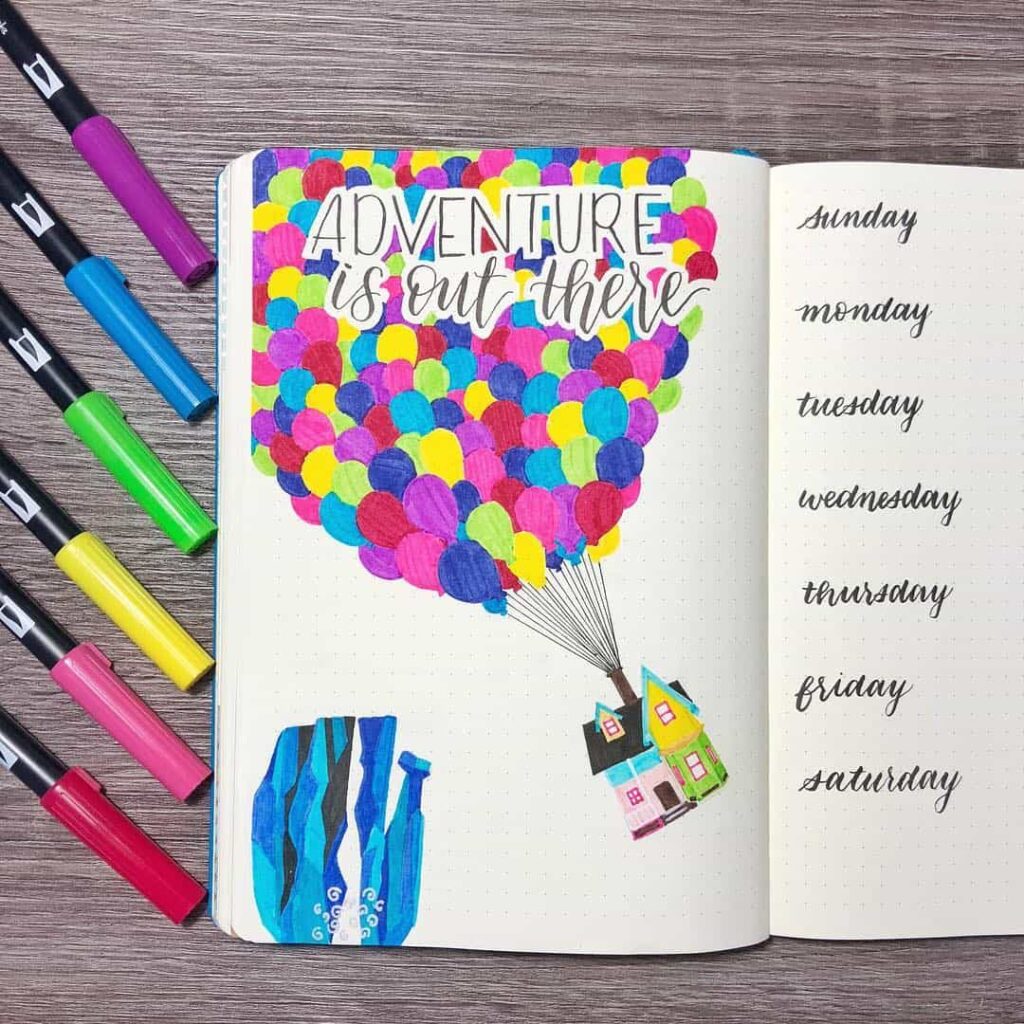 ADVENTURE
is out there
sunday
monday
tuesday
wednesday
thursday
friday
saturday